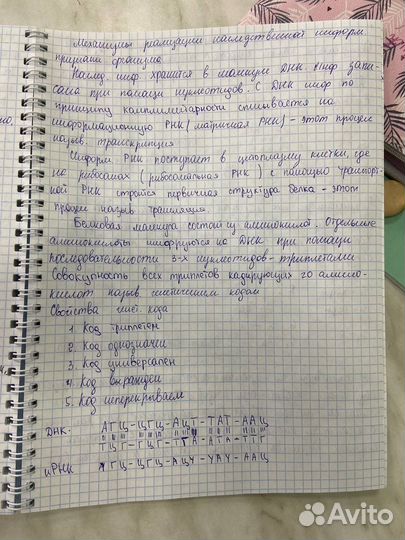 Механизмы реализации наследственной информ.
признаки
Наслед. инф. хранится в молекуле ДНК инф запи-
сана при помощи нуклеотидов. С ДНК инф по
принципу комплиментарности списывается на
информационную РНК (матричная РНК) - этот процесс
назыв. транскрипция
Информ РНК поступает в цитоплазму клетки, где
на рибосомах (рибосомальная РНК) с помощью транспорт-
ной РНК строится первичная структура белка - этот
процесс назыв трансляция
Белковая молекула состоит из аминокислот. Отдельные
аминокислоты шифруются на ДНК при помощи
последовательности 3-х нуклеотидов - триплетами
Совокупность всех триплетов кодирующих 20 амино-
кислот назыв генетическим кодом
Свойства генет. кода
1. Код триплетен
2. Код однозначен
3. Код универсален
4. Код вырожден
5. Код неперекрываем
ДНК: АТЦ-ЦГЦ-АЦТ-ТАТ-ААЦ
ТЦГ-ГЦГ-ТГА-АТА-ТТГ
иРНК ЦГЦ-АЦУ-УАУ-ААЦ
Avito